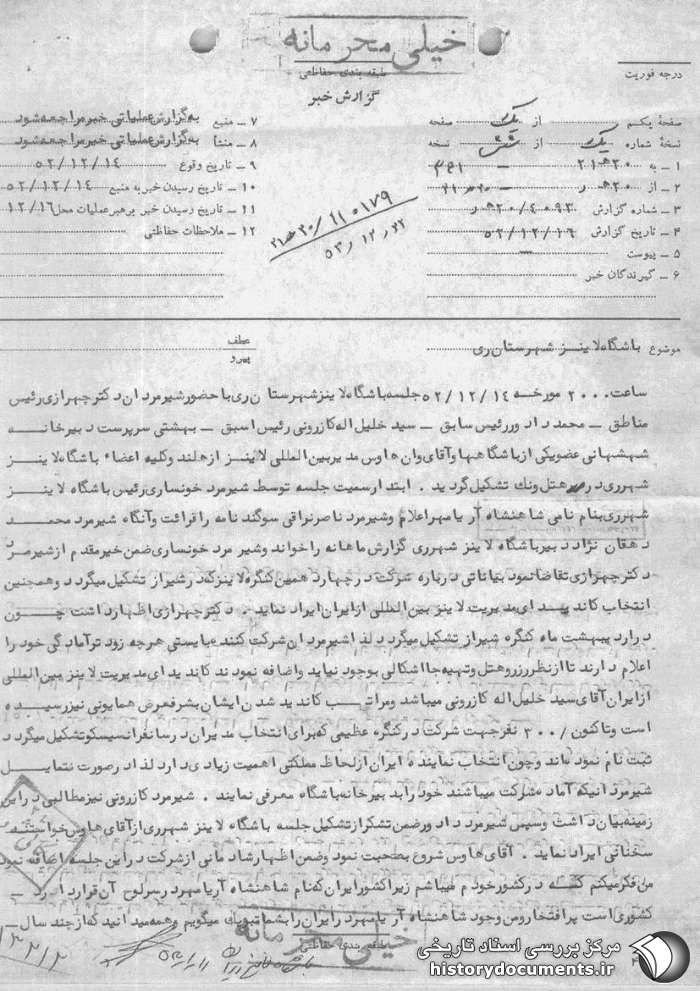 خیلی محرمانه
طبقه بندی حفاظتی
گزارش خبر
درجه فوریت
صفحهٔ یکم از یک صفحه
نسخهٔ شماره یک از شش نسخه
۱ ـ به ۲۰ ﻫ ۲۱ ـ ۳۴۱
۲ ـ از ۲۰ ﻫ ر
۳ ـ شماره گزارش ۲۰/۴۰۹۳ ﻫ ر
۴ ـ تاریخ گزارش ۵۲/۱۲/۱۶
۵ ـ پیوست ـ
۶ ـ گیرندگان خبر
۷ ـ منبع به گزارش عملیاتی خبر مراجعه شود
۸ ـ منشأ به گزارش عملیاتی خبر مراجعه شود
۹ ـ تاریخ وقوع ۵۲/۱۲/۱۴
۱۰ ـ تاریخ رسیدن خبر به منبع ۵۲/۱۲/۱۴
۱۱ ـ تاریخ رسیدن خبر برهبر عملیات محل ۱۲/۱۶
۱۲ ـ ملاحظات حفاظتی
موضوع باشگاه لاینز شهرستان ری
عطف
پیرو
ساعت ۲۰۰۰ مورخه ۵۲/۱۲/۱۴ جلسه باشگاه لاینز شهرستان ری با حضور شیرمردان دکتر چهرازی رئیس
مناطق ـ محمد داد ور رئیس سابق ـ سید خلیل اله کازرونی رئیس اسبق ـ بهشتی سرپرست دبیرخانه
شهشهانی عضو یکی از باشگاهها و آقای وان هاوس مدیر بین المللی لاینز از هلند و کلیه اعضاء باشگاه لاینز
شهر ری در هتل ونک تشکیل گردید . ابتدا رسمیت جلسه توسط شیرمرد خونساری رئیس باشگاه لاینز
شهر ری بنام نامی شاهنشاه آریامهر اعلام و شیرمرد ناصر نراقی سوگند نامه را قرائت و آنگاه شیرمرد محمد
دهقان نژاد دبیر باشگاه لاینز شهر ری گزارش ماهانه را خواند و شیر مرد خونساری ضمن خیر مقدم از شیرمرد
دکتر چهرازی تقاضا نمود بیاناتی درباره شرکت در چهاردهمین کنگره لاینز که در شیراز تشکیل میگردد و همچنین
انتخاب کاندیدای مدیریت لاینز بین المللی از ایران ایراد نماید . دکتر چهرازی اظهار داشت چون
در اردیبهشت ماه کنگره شیراز تشکیل میگردد لذا شیرمردان شرکت کننده بایستی هرچه زودتر آمادگی خود را
اعلام دارند تا از نظر رزرو هتل و تهیه جا اشکالی بوجود نیاید و اضافه نمودند کاندیدای مدیریت لاینز بین المللی
از ایران آقای سید خلیل اله کازرونی میباشد و مراتب کاندید شدن ایشان بشرفعرض همایونی نیز رسیده
است و تاکنون ۳۰۰/ نفر جهت شرکت در کنگره عظیمی که برای انتخاب مدیران در سانفرانسیسکو تشکیل میگردد
ثبت نام نموده اند و چون انتخاب نماینده ایران از لحاظ مملکتی اهمیت زیادی دارد لذا در صورت تمایل
شیرمردانیکه آماده شرکت میباشند خود را به دبیرخانه باشگاه معرفی نمایند . شیرمرد کازرونی نیز مطالبی در این
زمینه بیان داشت و سپس شیرمرد داد ور ضمن تشکر از تشکیل جلسه باشگاه لاینز شهر ری از آقای هاوس خواستند
سخنانی ایراد نماید . آقای هاوس شروع به صحبت نمود و ضمن اظهار شادمانی از شرکت در این جلسه اضافه نمود
من فکر میکنم که در کشور خودم میباشم زیرا کشور ایران که نام شاهنشاه آریامهر در سرلوح آن قرار دارد ـ
کشوری است پر افتخار و من وجود شاهنشاه آریامهر در ایران را بشما تبریک میگویم و همه میدانید که از چند سال ـ
خیلی محرمانه
طبقه بندی حفاظتی
مرکز بررسی اسناد تاریخی
historydocuments.ir